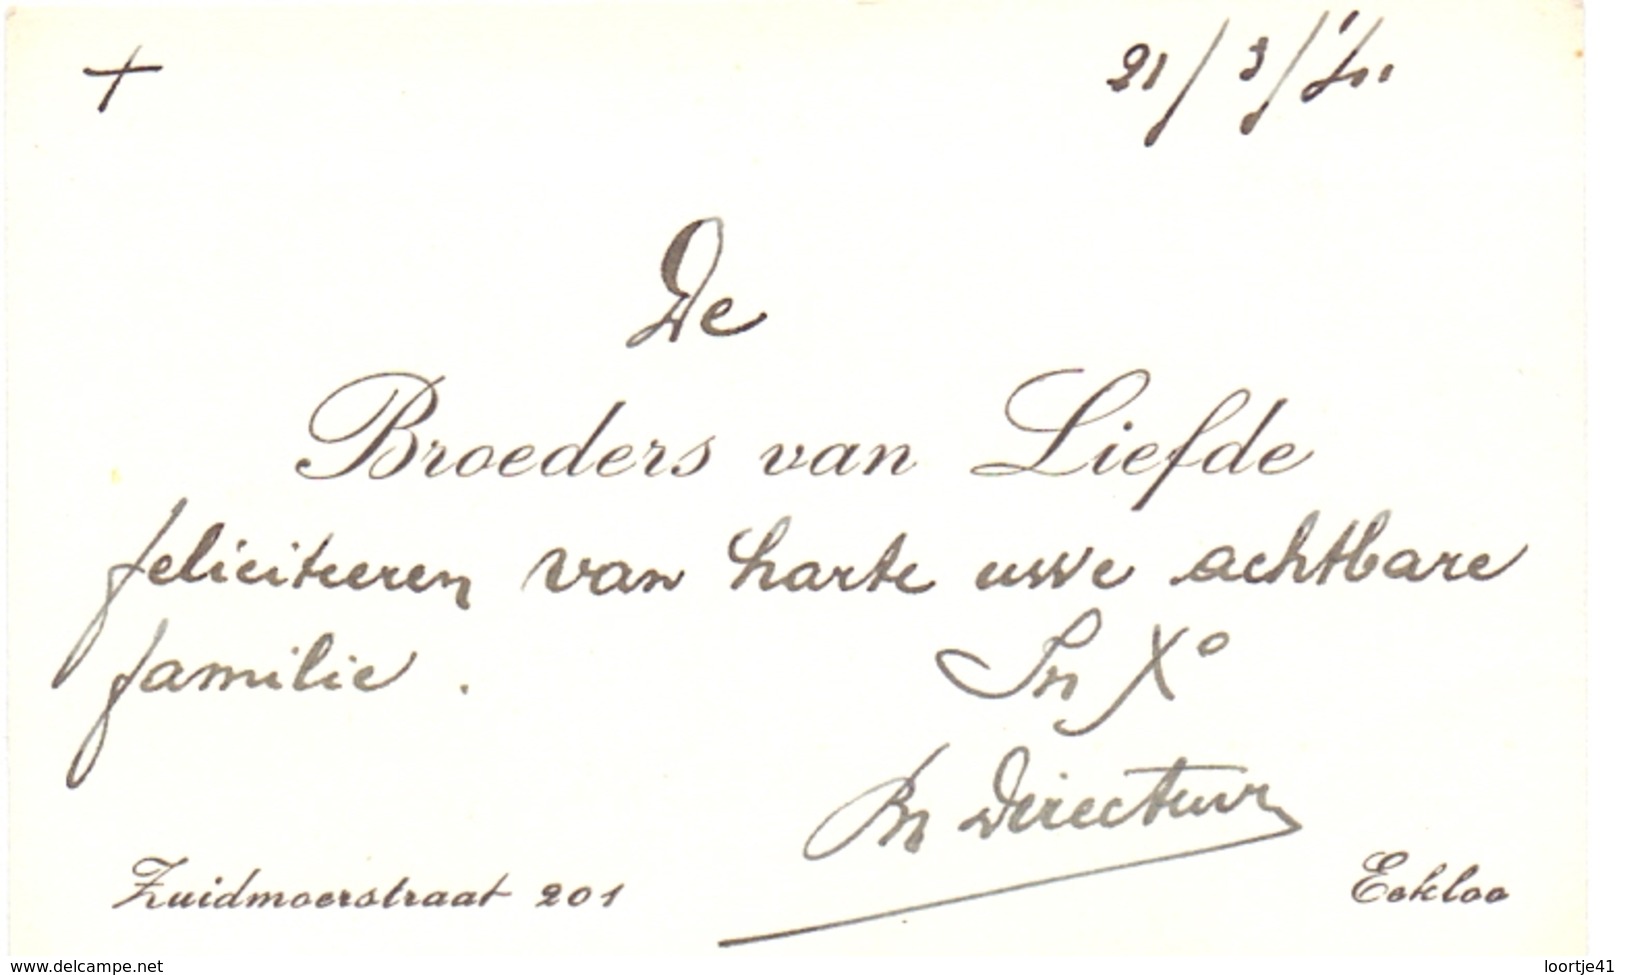 +
21/3/
De
Broeders van Liefde
feliciteeren van harte uwe achtbare
familie.
In X°
Br Directeur
Zuidmoerstraat 201
Eekloo
www.delcampe.net
loortje41